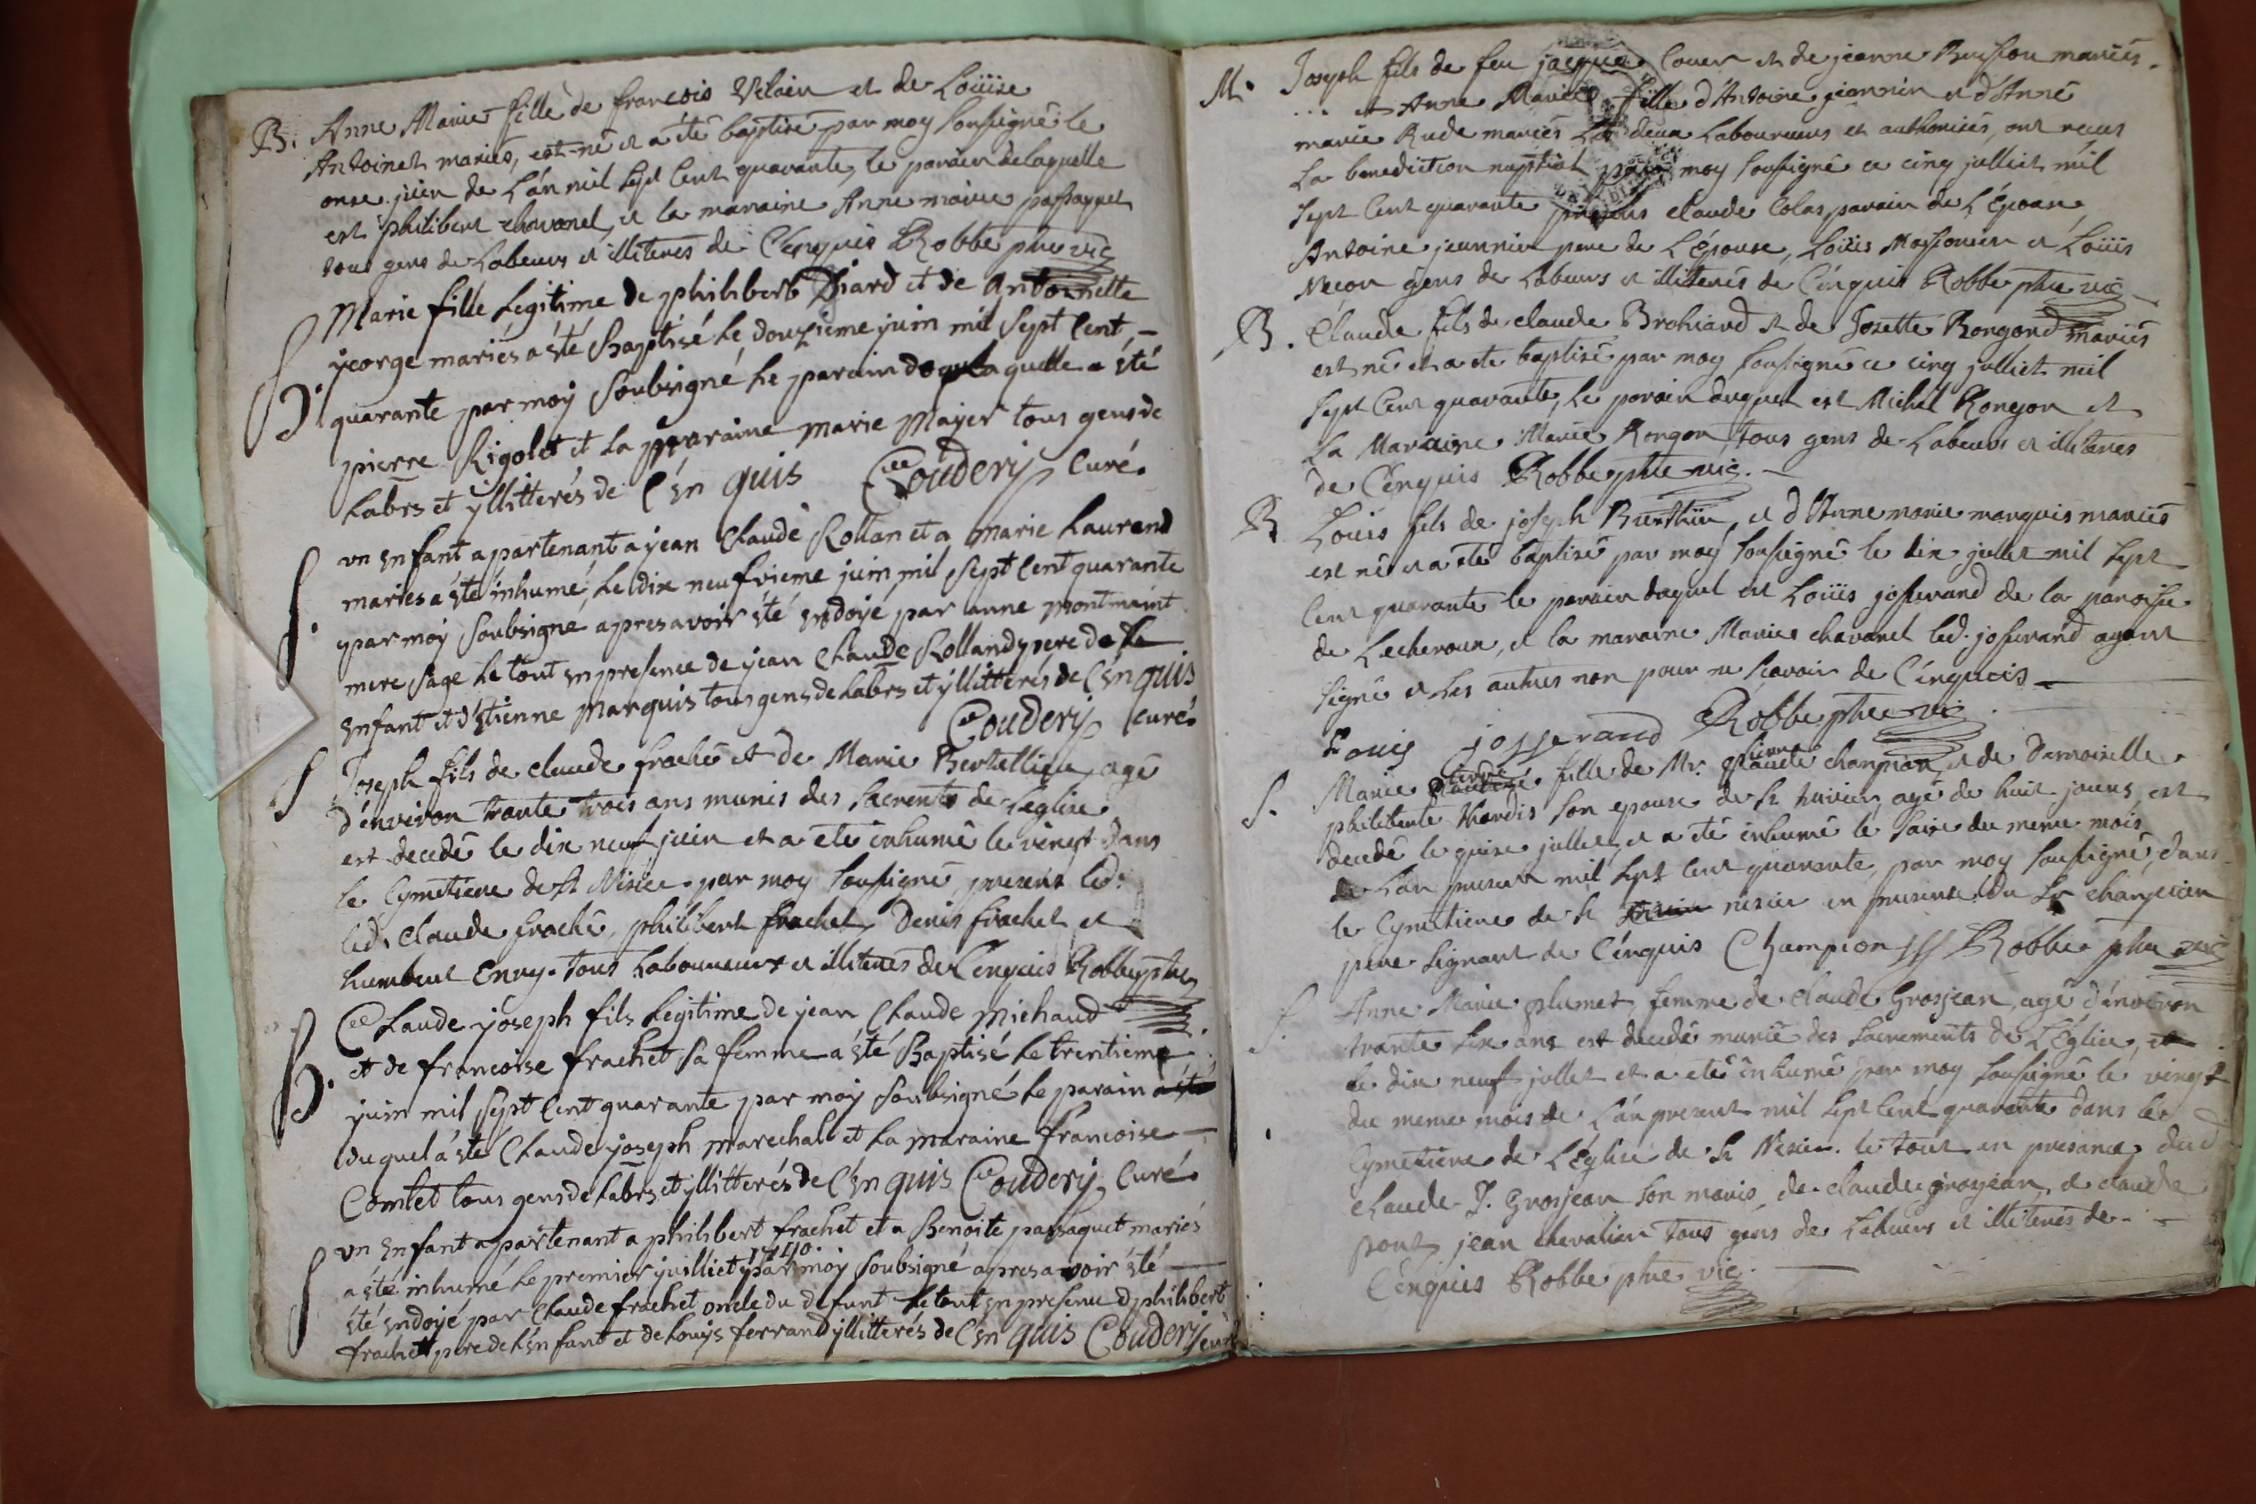 B. Anne Marie fille de françois Velain et de Loüise
Antoinet mariés, est né et a été baptisé par moy soussigné le
onse juin de L'an mil sept cent quarante, le parain de laquelle
est philibert chavanel, et la maraine Anne marie passaquet
tous gens de Labeurs et illiterés de Cénquis Robbe ptre vic
Marie fille Legitime de philibert Thiard et de Antoinette
B. george mariés a sté Baptisé Le douzieme juin mil sept Cent –
quarante par moÿ Soubsigné Le parain de laquelle a été
pierre Rigolet et La maraine marie Mayer tous gens de
Labrs et ÿllitterés de Cén quis Couderij Curé.
S. vn Enfant apartenant a jean Claude Rollan et a marie Laurend
mariés a sté inhumé, Le dix neufvieme juin mil sept Cent quarante
par moÿ Soubsigne apres avoir sté Endoÿé par anne montmaint
mere sage Le tout En presence de jean Claude Rolland pere de Le
Enfant et d'Etienne Marquis tous gens de Labrs et ÿllitterés de Cén quis
Couderij Curé.
S Joseph fils de claude fraché et de Marie Bertellieu, agé
d'environ trante trois ans munis des sacrents de L'église
est decedé le dix neuf juin et a eté inhumé le vingt dans
le Cymetiere de st Nisier par moy soussigné, present led.
led. Claude fraché, philibert frachet, Denis frachet et
humbert Enuy. tous Laboureurs et illiterés de Cénquis Robbe ptre
B. Claude joseph fils Legitime de jean Claude Michaud
et de francoise frachet Sa femme a sté Baptisé Le trentieme
juin mil sept Cent quarante par moÿ Soubsigné Le parain a sté
duquel a sté Claude joseph marechal et La maraine francoise –
Comtet tous gens de Labrs et ÿllitterés de Cén quis Couderij Curé.
S vn Enfant apartenant a philibert frachet et a Benoite passaquet mariés
a sté inhumé Le premier juilliet 1740. par moÿ Soubsigné apres avoir sté
sté Endoyé par Claude frachet oncle du defunt Le tout En presence d philibert
frachet pere de L'Enfant et de Louys ferrand ÿllitterés de Cén quis Couderij curé
M. Joseph fils de feu jacque Couer et de jeanne Buisson mariés.
... et Anne Marie fille d'Antoine jeannin et d'Anne
marie Rude mariés Les deux Laboureurs et authorisés, ont reçus
La benediction nuptial par moy soussigné ce cinq julliet mil
sept Cent quarante presens claude Colas parain de L'Époux,
Antoine jeannin pere de L'épouse, Loüis Moissonier et Loüis
Necon gens de Labeurs et illiterés de Cénquis Robbe ptre vic
B. Claude fils de claude Brohiard et de Josette Rongond mariés
est né et a eté baptisé par moy soussigné ce cinq julliet mil
sept Cent quarante, Le parain duquel est Michel Rongon et
La Maraine Marie Rongon tous gens de Labeurs et illiterés
de Cénquis Robbe ptre vic.
B Loüis fils de joseph Berthier, et d'Anne marie marquis mariés
est né et a eté baptisé par moy soussigné le dix jullet mil sept
Cent quarante le parain duquel est Loüis josserand de la paroisse
de Lecheroux, et la maraine Marie chavanel led. josserand ayant
signé et Les autres non pour ne sçavoir de Cénquis
Louis josserand Robbe ptre vic
S. Marie pierre fille de Mr. pierre claude champion, et de Damoiselle
philiberte Nardis son epouse de st agé de huit jours, est
decedé le quise jullet, et a eté inhumé le saise du meme mois
de L'an present mil sept Cent quarante, par moy soussigné, dans
le Cymetiere de st nisier en presence du Sr champion
pere signant de Cénquis Champion Robbe ptre vic
S. Anne Marie plumet, femme de claude Grosjean, agé d'environ
trante six ans est decedé munie des Sacrements de L'Église, et
le dix neuf jullet et a eté inhumé par moy soussigné le vingt
du meme mois de L'an present mil sept Cent quarante dans le
Cymetiere de L'Église de st Nisier. le tout en presance dud
claude J. Grosjean son maris, de claude grosjean, de claude
pont, jean chevalier tous gens de Labeurs et illiterés de
Cénquis Robbe ptre vic.